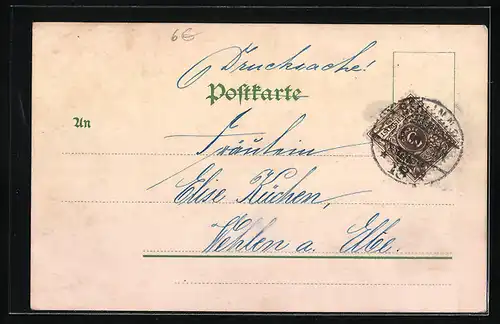 6€
Drucksache!
Postkarte
An
Fräulein
Elise Küchen,
Wehlen a. Elbe.